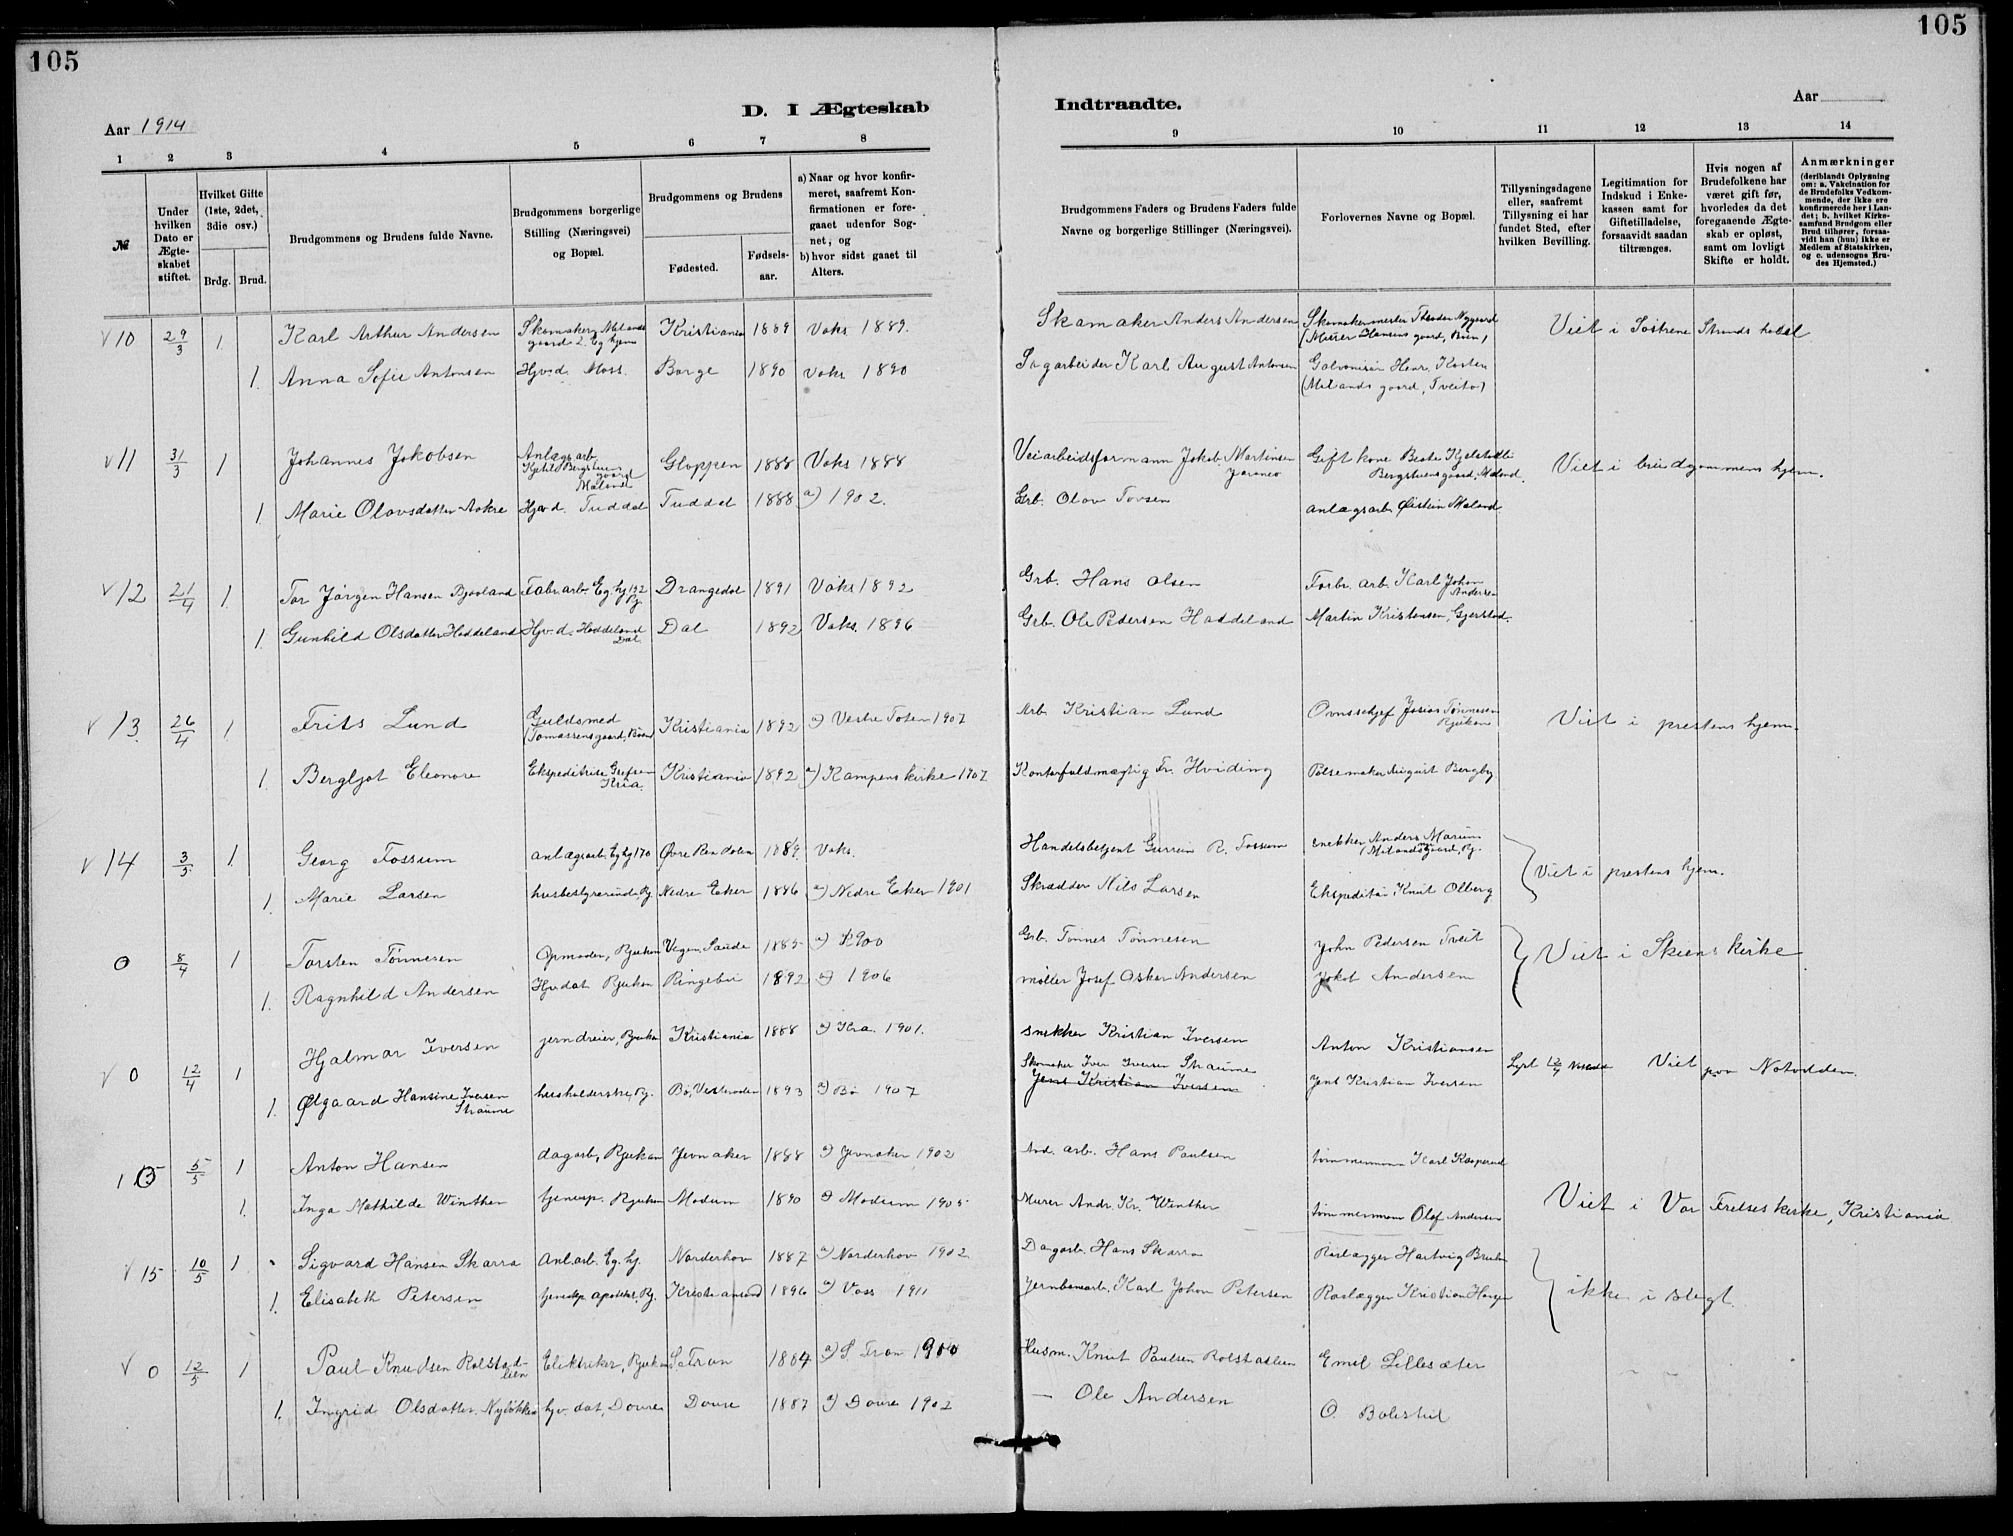 105
105
D. I Ægteskab
Indtraadte.
Aar 1914
Aar
1 2 3 4 5 6 7 8
9 10 11 12 13 14
№
Under hvilken Dato er Ægteskabet stiftet.
Hvilket Gifte (1ste, 2det, 3die osv.)
Brdg. Brud.
Brudgommens og Brudens fulde Navne.
Brudgommens borgerlige Stilling (Næringsvei) og Bopæl.
Brudgommens og Brudens
Fødested.
Fødsels-aar.
a) Naar og hvor konfirmeret, saafremt Konfirmationen er foregaaet udenfor Sognet, og
b) hvor sidst gaaet til Alters.
Brudgommens Faders og Brudens Faders fulde Navne og borgerlige Stillinger (Næringsvei).
Forlovernes Navne og Bopæl.
Tillysningsdagene eller, saafremt Tillysning ei har fundet Sted, efter hvilken Bevilling.
Legitimation for Indskud i Enkekassen samt for Giftetilladelse, forsaavidt saadan tiltrænges.
Hvis nogen af Brudefolkene har været gift før, hvorledes da det foregaaende Ægteskab er opløst, samt om lovligt Skifte er holdt.
Anmærkninger (deriblandt Oplysning om: a. Vakcination for de Brudefolks Vedkommende, der ikke ere konfirmerede her i Landet; b. hvilket Kirkesamfund Brudgom eller Brud tilhører, forsaavidt han (hun) ikke er Medlem af Statskirken, og c. udensogns Brudes Hjemsted.)
v 10 29/3 1 Karl Arthur Andersen Skomaker, Milands gaard 2. Eg. hjem Kristiania 1889 Vaks 1889. Skomaker Anders Andersen Skomakermester Theodor Nygaard (Murer Hansens gaard, Bøen) Viet i Søstrene Strands hotel
1. Anna Sofie Antonsen Hjv.d. Moss. Borge 1890 vaks 1890 Sagarbeider Karl August Antonsen Galvonisør Henr. Kasten (Milands gaard, Tveito)
v 11 31/3 1 Johannes Jakobsen Anlægsarb. Kjetil Bergstuens gaard Mæland Gloppen 1888 Vaks 1888 Veiarbeidsformann Jakob Martinsen Gift kone Beate Kjelstadli Bergstuensgaard, Mæland. Viet i brudgommens hjem.
1. Marie Olavsdatter Aakre Hjv.d. Tuddal Tuddal 1888 a) 1902. Grb. Olav Tovsen anlægsarb. Øistein Mæland
v 12 21/4 1. Tor Jørgen Hansen Bjaaland Fabr. arb. Eg. hj 192 Rj. Drangedal 1891 Vaks 1892 Grb. Hans Olsen Fabr. arb. Karl Johan Andersen
1. Gunhild Olsdatter Haddeland Hjv.d. Haddeland Dal. Dal 1892 Vaks. 1896 Grb. Ole Pedersen Haddeland Martin Kristensen, Gjerstad.
v 13. 26/4 1. Frits Lund Guldsmed (Tomassensgaard, Bøen) Kristiania 1892 a) Vestre Toten 1907 Arb. Kristian Lund Ovnsschef Josias Tønnesen Rjukan Viet i prestens hjem.
1. Bergljot Eleonore Ekspeditrise Grefsen Kria. Kristiania 1892 a) Kampens kirke 1907 Kontorfuldmægtig Fr. Hviding Pølsemaker August Bergby.
v 14 3/5 1. Georg Fossum anlægsarb. Eg hj 170 Øvre Rendalen 1889. Vaks. Handelsbetjent R. Fossum snekker Anders Marum (Milandsgaard, Rj. Viet i prestens hjem.
1. Marie Larsen husbestyrerinde, Rj. Nedre Eker 1886 a) Nedre Eker 1901 Skrædder Nils Larsen Ekspeditør Knut Olberg
0 8/4 1 Torsten Tønnesen Opmader, Rjukan Vegen, Saude 1885 a) 1900 Grb. Tønnes Tønnesen John Pedersen Tveit Viet i Skiens kirke
1. Ragnhild Andersen Hjv. dat Rjukan Ringebu 1892 a) 1906 møller Josef Oskar Andersen Jakob Andersen
v 0 12/4 1 Hjalmar Iversen jerndreier, Rjukan Kristiania 1888 a) Kra. 1901. snekker Kristian Iversen Anton Kristiansen Lyst 12/4 Viet paa Notodden.
1. Ølgaard Hansine Iversen Straume husholderske, Rj. Bø, Vesteraalen 1893 a) Bø 1907 Skomaker Iver Iversen Straume Jens Kristian Iversen Jens Kristian Iversen
15 5/5 1 Anton Hansen dagarb, Rjukan Jevnaker 1888 a) Jevnaker 1902 And. arb. Hans Paulsen tømmermann Karl Kasperud
1. Inga Mathilde Winther tjenesp. Rjukan Modum 1890 a) Modum 1905 Murer Andr. Kr. Winther tømmermann Olaf Andersen Viet i Vor Frelses kirke, Kristiania
v 15 10/5 1 Sigvard Hansen Skarra Anl.arb. Eg. hj. Norderhov 1887 a) Norderhov 1902 Dagarb. Hans Skarra Rørlægger Hartvig Bruden ikke i slegt.
1. Elisabeth Petersen tjenestep. apoteket, Rj. Kristiansand 1896 a) Voss 1911 Jernbanearb. Karl Johan Petersen Rørlægger Kristian Hansen
v 0 12/5 1 Paul Knudsen Rolstadlien Elektriker, Rjukan S. Fron 1884 a) S. Fron 1900 Husm. Knut Paulsen Rolstadlien Emil Lillesæter
1. Ingrid Olsdatter Nyløkken hjv. dat, Dovre Dovre 1887 a) Dovre 1902 — Ole Andersen O. Bolestul